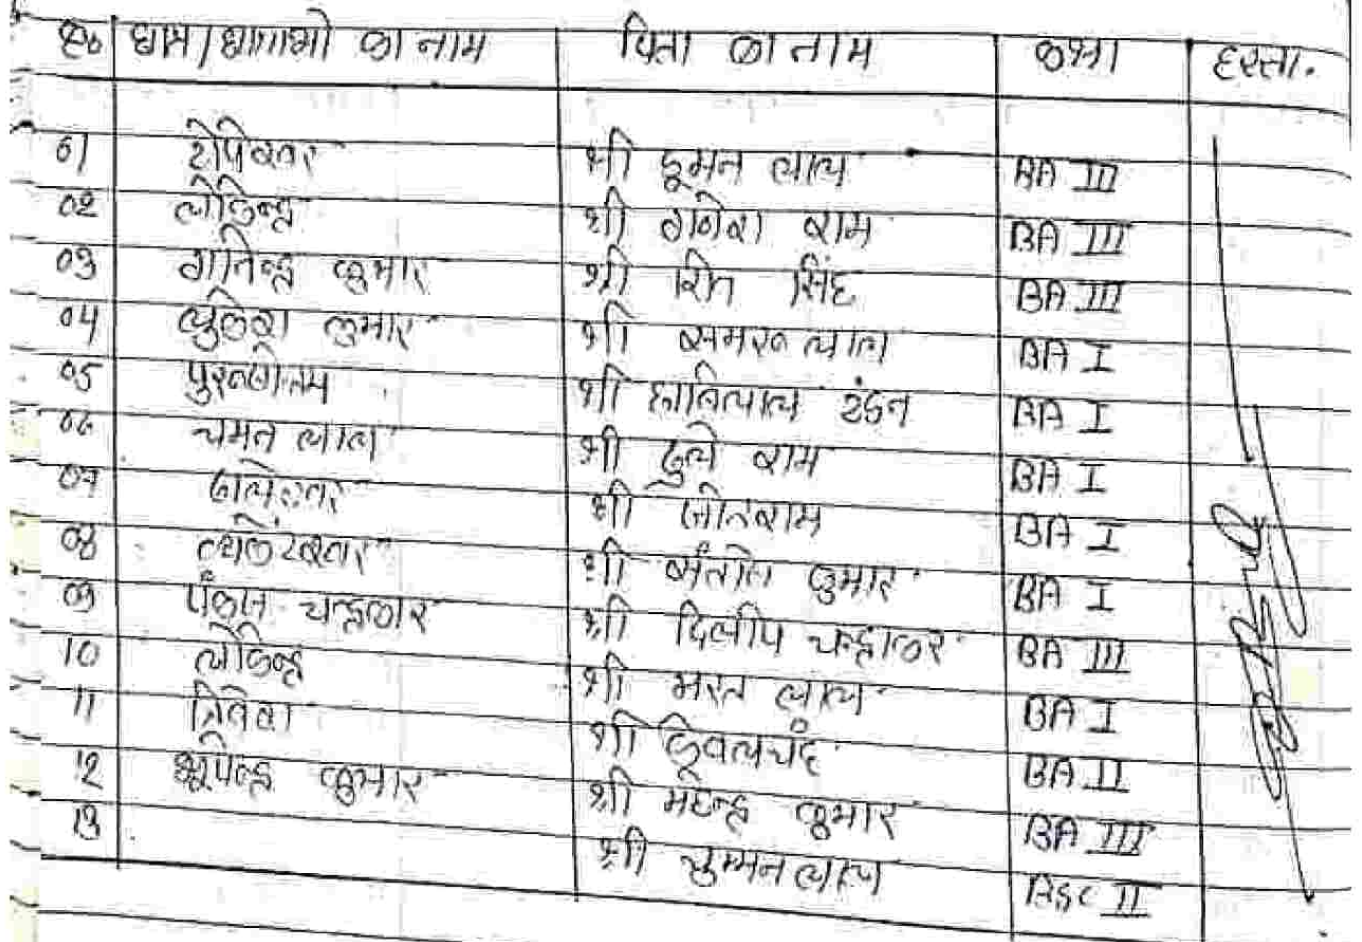 क्र० छात्र/छात्राओ का नाम पिता का नाम कक्षा हस्ता.
01 टोपेश्वर श्री हूमन लाल BA III
02 लोकेन्द्र श्री गणेश राम BA III
03 गजेन्द्र कुमार श्री सिंह BA III
04 कुमार श्री समरू लाल BA I
05 पुरूषोत्तम श्री टंडन BA I
06 चमन लाल श्री दुले राम BA I
07 श्री जीतराम BA I
08 श्री संतोष कुमार BA I
09 पंकज चन्द्राकर श्री दिलीप चन्द्राकर BA III
10 लोकेन्द्र श्री भरत लाल BA I
11 श्री BA II
12 भूपेन्द्र कुमार श्री महेन्द्र कुमार BA III
13 श्री चुम्मन लाल BSC II